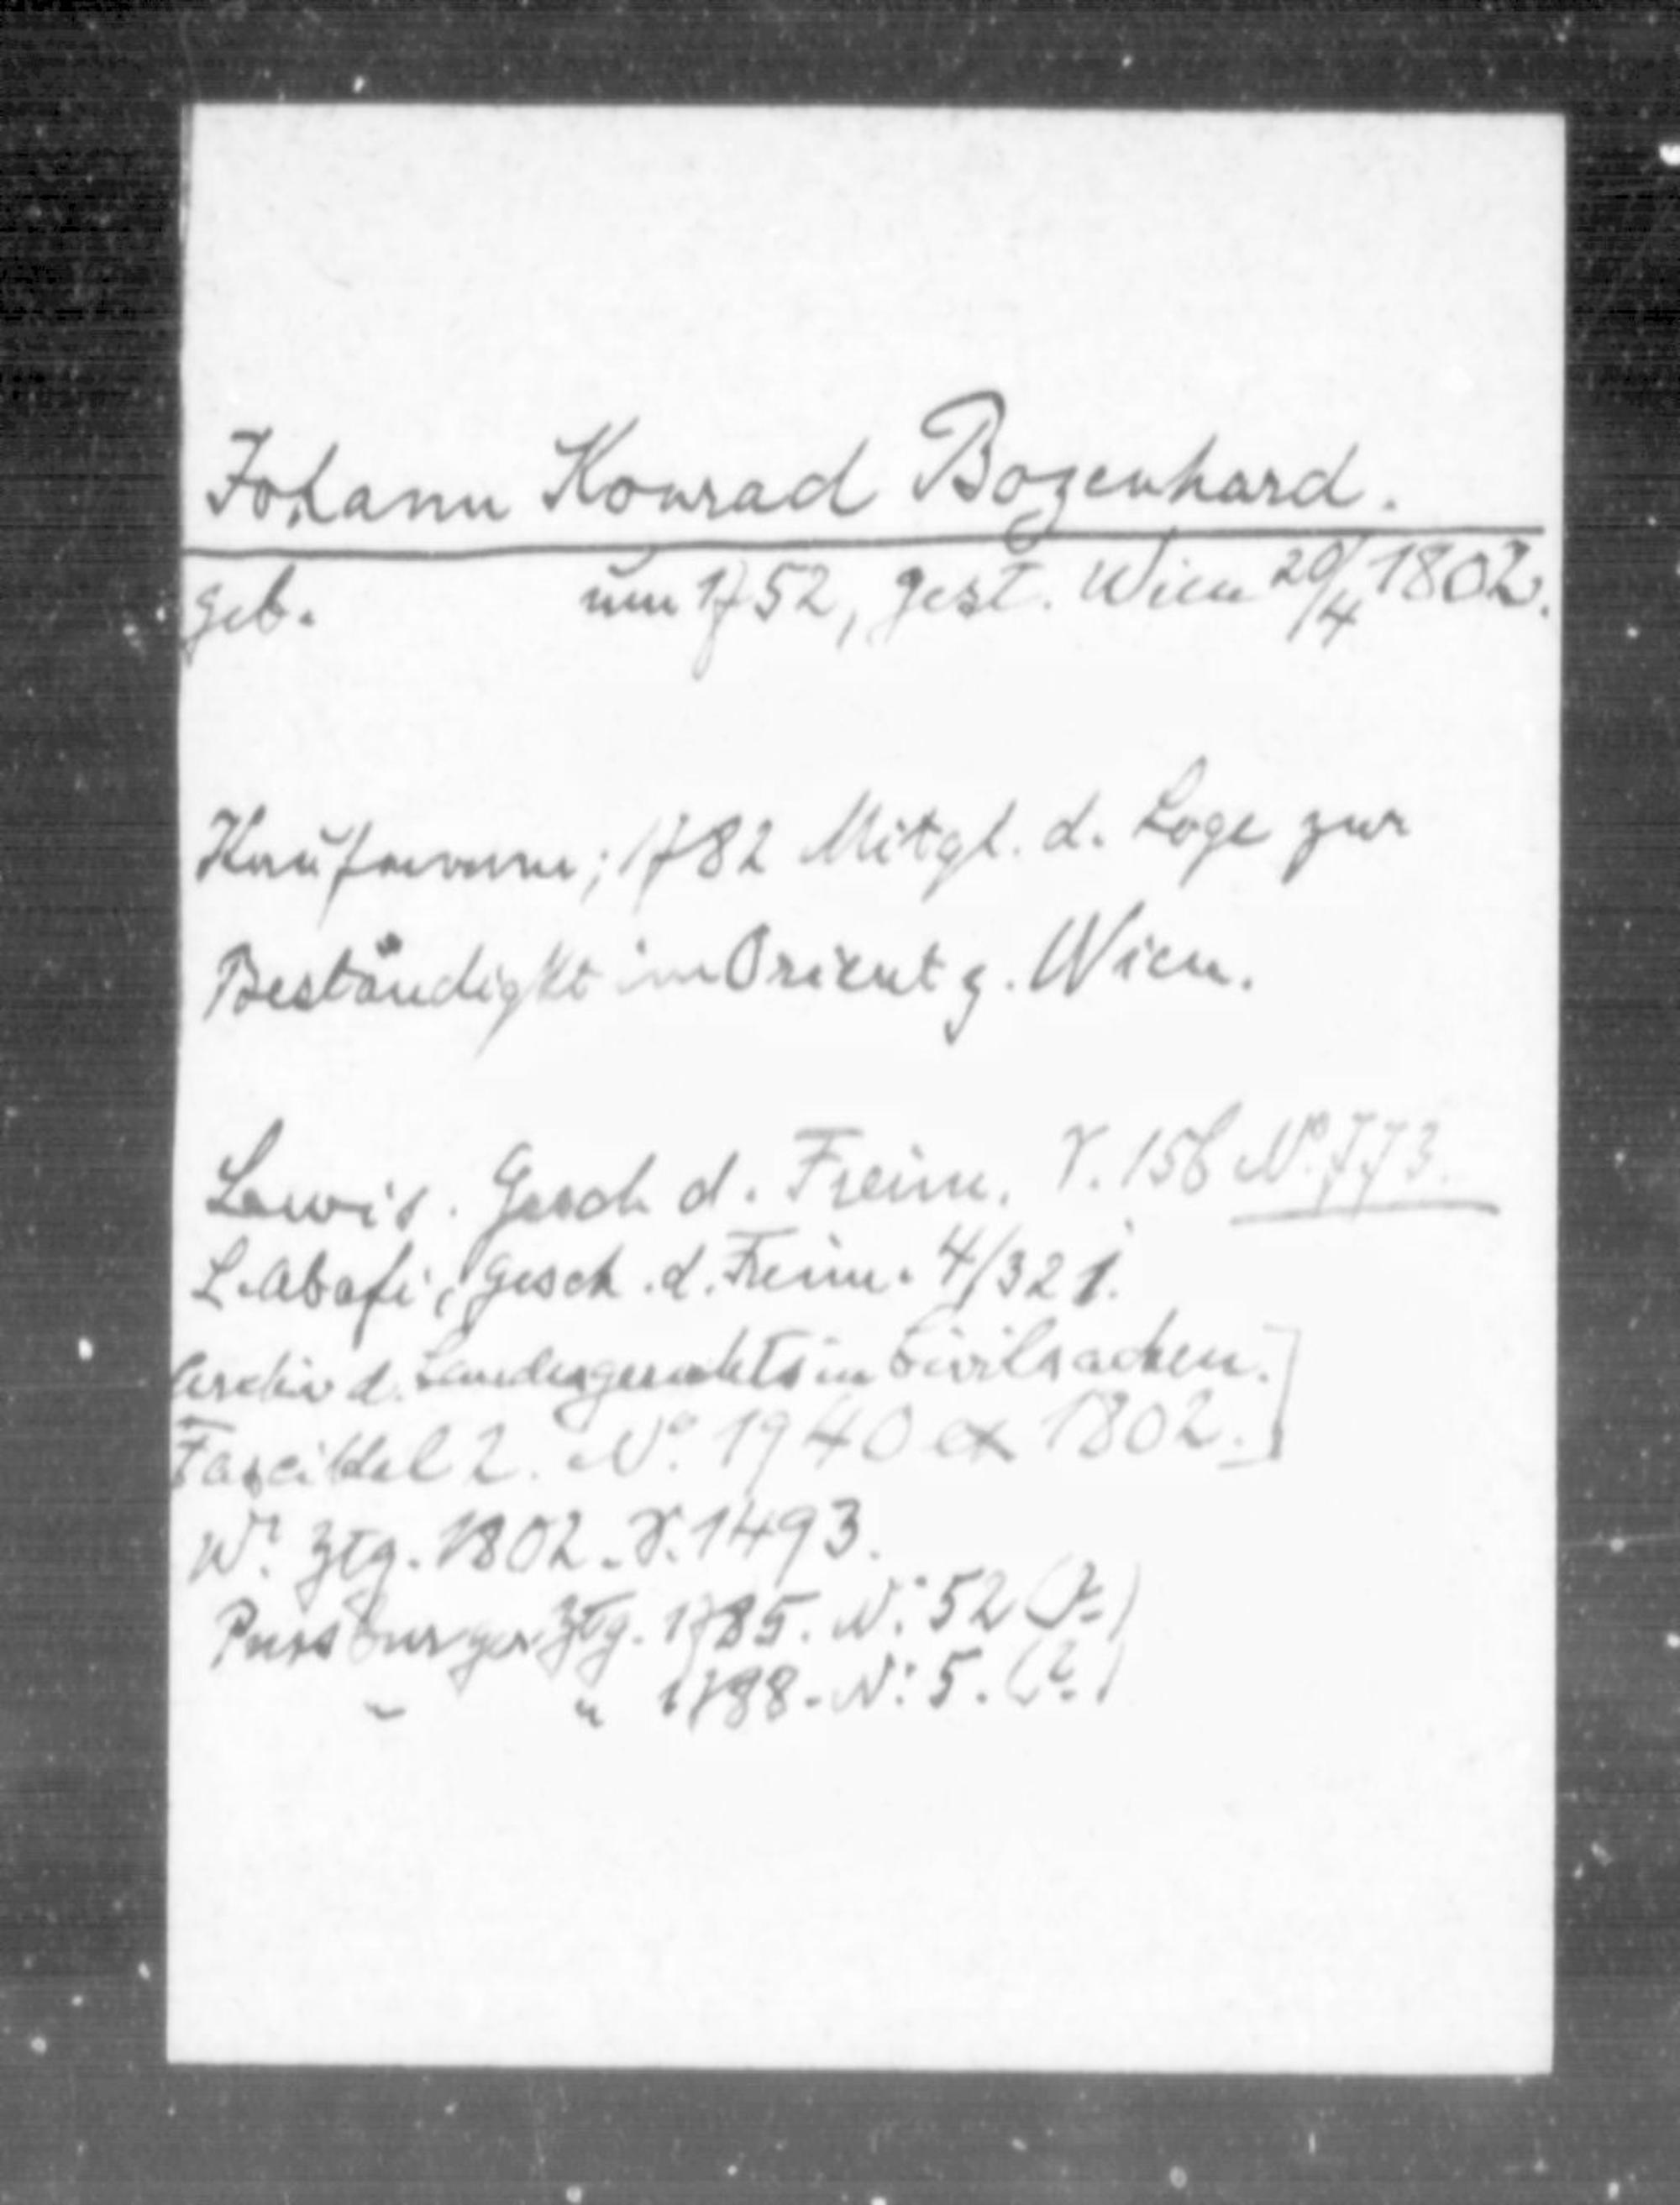 Johann Konrad Bozenhard.
geb. um 1752, gest. Wien 20/4 1802.
Kaufmann; 1782 Mitgl. d. Loge zur
Beständigkt im Orient z. Wien.
Lewis. Gesch d. Freim. S. 156 No. 773.
L. Abafi, Gesch. d. Freim. 4/321.
Archiv d. Landesgerichts in Civilsachen.]
Fascikel 2. No. 1940 ex 1802.]
Wr. Ztg. 1802. S. 1493.
Pressburger Ztg. 1785. N: 52 (?)
" " 1788. N: 5. (?)